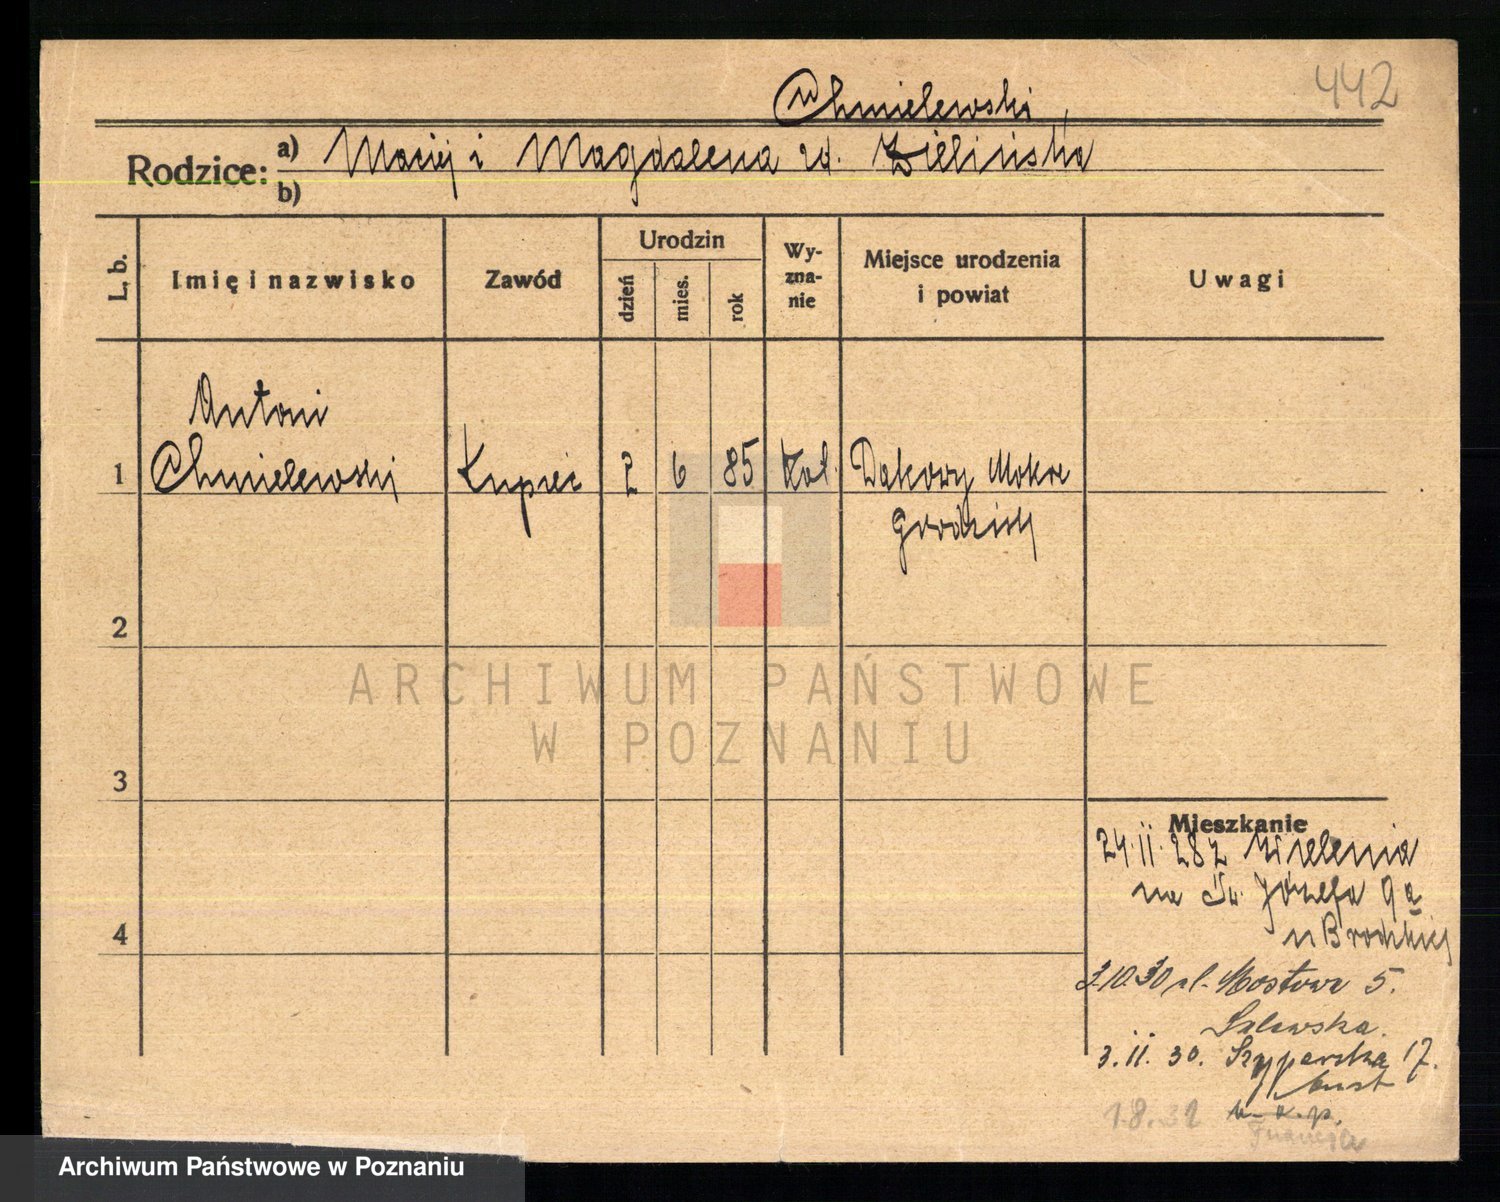 442
Chmielewski
Rodzice: a) Maciej i Magdalena zd. Zielińska
b)
L. b.
Imię i nazwisko
Zawód
Urodzin
dzień
mies.
rok
Wy-
zna-
nie
Miejsce urodzenia
i powiat
Uwagi
Antoni
1 Chmielewski Kupiec 2 6 85 Kat. Dakowy Mokre
Grodzisk
2
ARCHIWUM PAŃSTWOWE
W POZNANIU
3
Mieszkanie
24.11.28 z Wielenia
na Św. Józefa 9a
u Brodzkiej
4
3.10.30 ul. Mostowa 5.
3.11.30. Szyperska 17.
1.8.32
Archiwum Państwowe w Poznaniu